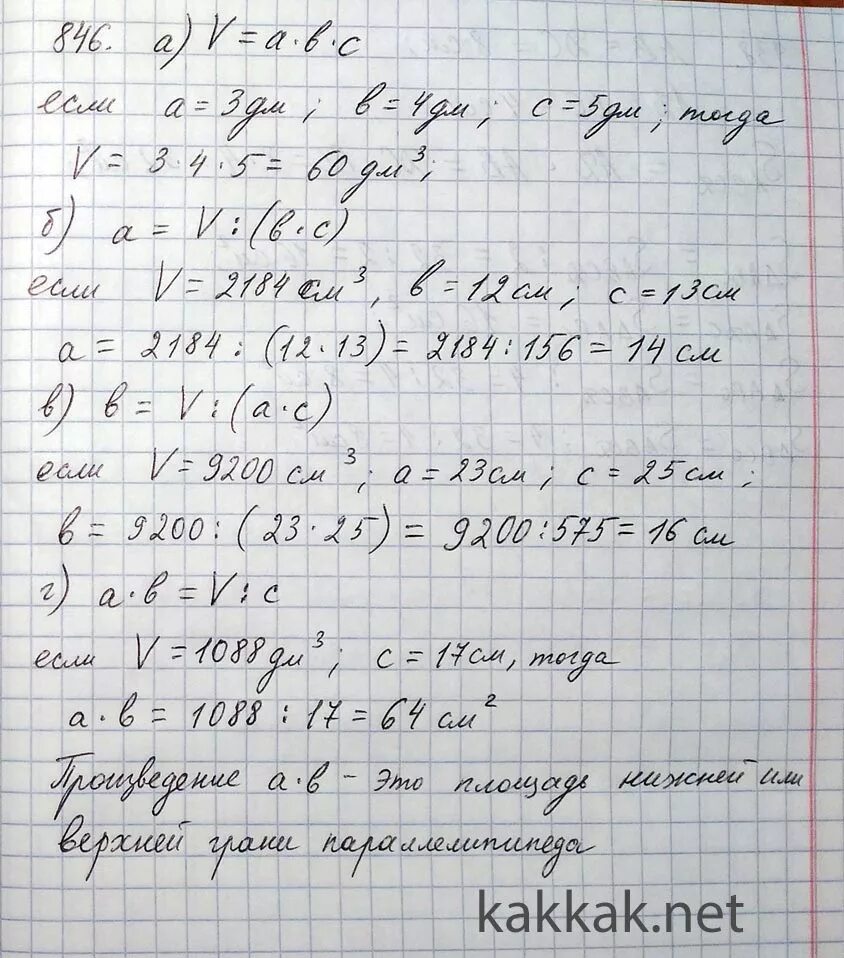 846. а) V = a · b · c
если a = 3 дм ; b = 4 дм ; c = 5 дм ; тогда
V = 3 · 4 · 5 = 60 дм³;
б) a = V : (b · c)
если V = 2184 см³, b = 12 см ; c = 13 см
a = 2184 : (12 · 13) = 2184 : 156 = 14 см
в) b = V : (a · c)
если V = 9200 см³ ; a = 23 см ; c = 25 см ;
b = 9200 : (23 · 25) = 9200 : 575 = 16 см
г) a · b = V : c
если V = 1088 дм³ ; c = 17 см, тогда
a · b = 1088 : 17 = 64 см²
Произведение a · b - это площадь нижней или
верхней грани параллелипипеда
kakkak.net